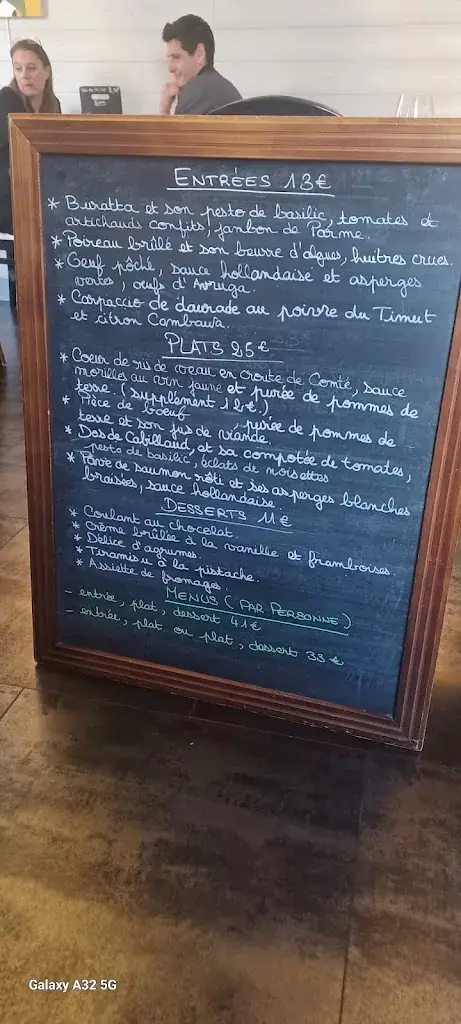 ENTRÉES 13€
* Buratta et son pesto de basilic, tomates et
artichauds confits, jambon de Parme.
* Poireau brûlé et son beurre d'algues, huitres crues.
* Oeuf pôché, sauce hollandaise et asperges
vertes, oeufs d'Avruga.
* Carpaccio de daurade au poivre du Timut
et citron Combawa.
PLATS 25€
* Coeur de ris de veau en croute de Comté, sauce
morilles au vin jaune et purée de pommes de
terre (supplément 12€.)
* Pièce de boeuf, purée de pommes de
terre et son jus de viande.
* Dos de Cabillaud, et sa compotée de tomates,
pesto de basilic, éclats de noisettes
* Pavé de saumon rôti et ses asperges blanches
braisées, sauce hollandaise.
DESSERTS 11€
* Coulant au chocolat.
* Crème brûlée à la vanille et framboises.
* Délice d'agrumes.
* Tiramisu à la pistache.
* Assiette de fromages.
MENUS (PAR PERSONNE)
- entrée, plat, dessert 41€
- entrée, plat ou plat, dessert 33€
Galaxy A32 5G